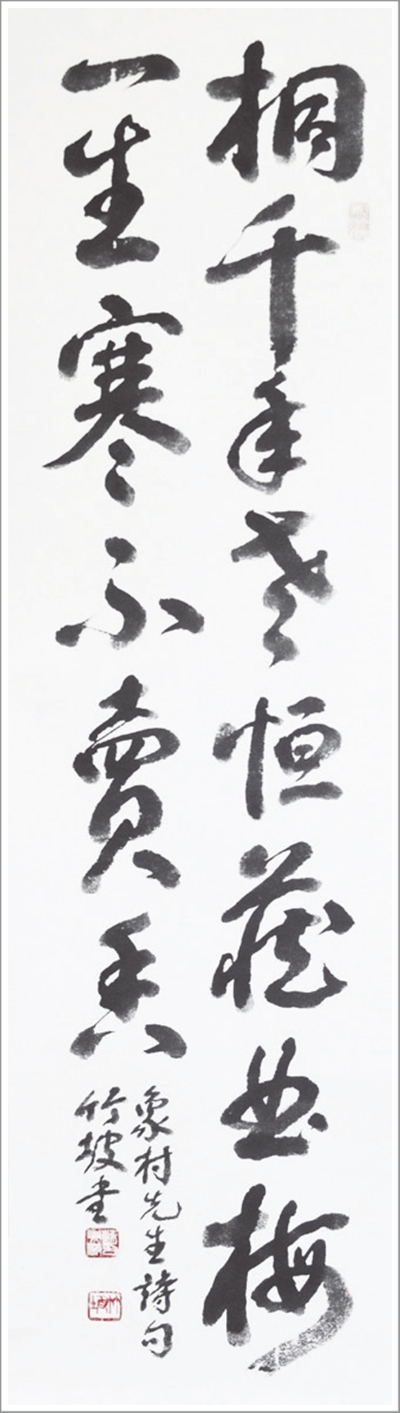 桐千年老恒藏曲梅
一生寒不賣香
象村先生詩句
竹坡書